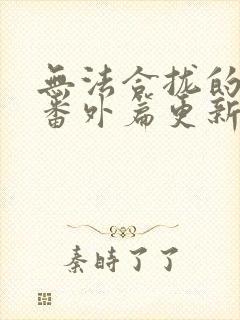 無法合拢的
番外篇更新
秦時了了